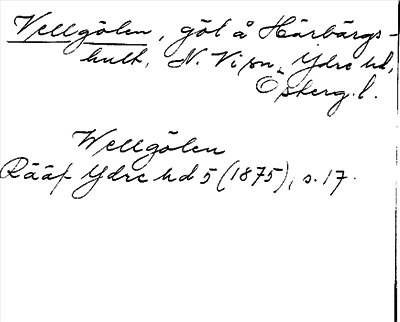 Vellgölen, göl å Härbärgs-
hult, N. Vi sn, Ydre hd,
Österg. l.
Wellgölen
Rääf Ydre hd 5 (1875), s. 17.